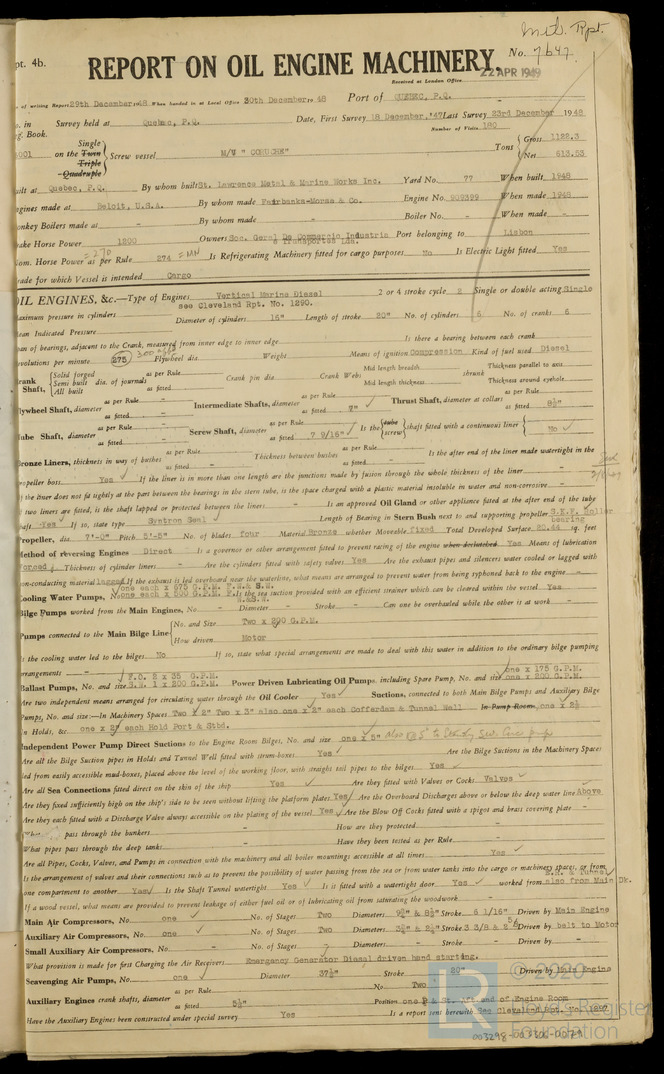 Mch. Rpt.
pt. 4b.
No. 7647.
REPORT ON OIL ENGINE MACHINERY.
Received at London Office 22 APR 1949
of writing Report 29th December 1948 When handed in at Local Office 30th December 1948 Port of QUEBEC, P.Q.
No. in Survey held at Quebec, P.Q. Date, First Survey 18 December, '47 Last Survey 23rd December 1948
Reg. Book. Number of Visits 180
on the Single Twin Triple Quadruple Screw vessel M/V Tons Gross 1122.3 Net 613.53
Built at Quebec, P.Q. By whom built St. Lawrence Metal & Marine Works Inc. Yard No. 77 When built 1948
Engines made at Beloit, U.S.A. By whom made Fairbanks-Morse & Co. Engine No. When made 1948
Donkey Boilers made at - By whom made - Boiler No. - When made -
Brake Horse Power 1200 Owners Soc. Geral Do Commercio Industria e Transportes Lda. Port belonging to Lisbon
Nom. Horse Power as per Rule = 270 274 = MN Is Refrigerating Machinery fitted for cargo purposes No Is Electric Light fitted Yes
Trade for which Vessel is intended Cargo
OIL ENGINES, &c.—Type of Engines Vertical Marine Diesel 2 or 4 stroke cycle 2 Single or double acting Single
see Cleveland Rpt. No. 1290.
Maximum pressure in cylinders Diameter of cylinders 16" Length of stroke 20" No. of cylinders 6 No. of cranks 6
Mean Indicated Pressure
Span of bearings, adjacent to the Crank, measured from inner edge to inner edge Is there a bearing between each crank
Revolutions per minute 275 Flywheel dia. Weight Means of ignition Compression Kind of fuel used Diesel
Crank Shaft, Solid forged Semi built All built dia. of journals as per Rule as fitted Crank pin dia. Crank Webs Mid length breadth Mid length thickness shrunk Thickness parallel to axis Thickness around eyehole
Flywheel Shaft, diameter as per Rule as fitted Intermediate Shafts, diameter as per Rule as fitted 7" Thrust Shaft, diameter at collars as per Rule as fitted
Tube Shaft, diameter as per Rule as fitted Screw Shaft, diameter as per Rule as fitted 7 9/16" Is the tube screw shaft fitted with a continuous liner No
Bronze Liners, thickness in way of bushes as per Rule as fitted - Thickness between bushes as per Rule as fitted - Is the after end of the liner made watertight in the
propeller boss Yes If the liner is in more than one length are the junctions made by fusion through the whole thickness of the liner -
If the liner does not fit tightly at the part between the bearings in the stern tube, is the space charged with a plastic material insoluble in water and non-corrosive -
If two liners are fitted, is the shaft lapped or protected between the liners - Is an approved Oil Gland or other appliance fitted at the after end of the tube
shaft Yes If so, state type Syntron Seal Length of Bearing in Stern Bush next to and supporting propeller S.K.F. Roller bearing
Propeller, dia. 7'-0" Pitch 5'-5" No. of blades four Material Bronze whether Moveable fixed Total Developed Surface 22.44 sq. feet
Method of reversing Engines Direct Is a governor or other arrangement fitted to prevent racing of the engine when declutched Yes Means of lubrication
Forced Thickness of cylinder liners - Are the cylinders fitted with safety valves Yes Are the exhaust pipes and silencers water cooled or lagged with
non-conducting material lagged If the exhaust is led overboard near the waterline, what means are arranged to prevent water from being syphoned back to the engine -
Cooling Water Pumps, No. one each x 675 G.P.M. F.W. & S.W. one each x 500 G.P.M. F.W. & S.W. Is the sea suction provided with an efficient strainer which can be cleared within the vessel Yes
Bilge Pumps worked from the Main Engines, No. - Diameter - Stroke - Can one be overhauled while the other is at work -
Pumps connected to the Main Bilge Line No. and Size Two x 200 G.P.M.
How driven Motor
Is the cooling water led to the bilges No If so, state what special arrangements are made to deal with this water in addition to the ordinary bilge pumping
arrangements -
Ballast Pumps, No. and size F.O. 2 x 35 G.P.M. 1 x 200 G.P.M. Power Driven Lubricating Oil Pumps, including Spare Pump, No. and size one x 175 G.P.M. one x 200 G.P.M.
Are two independent means arranged for circulating water through the Oil Cooler Yes Suctions, connected to both Main Bilge Pumps and Auxiliary Bilge
Pumps, No. and size:—In Machinery Spaces Two x 2" Two x 3" also one x 2" each Cofferdam & Tunnel Well In Pump Room, one x 2½
in Holds, &c. one x 2" each Hold Port & Stbd.
Independent Power Pump Direct Suctions to the Engine Room Bilges, No. and size one x 5"
Are all the Bilge Suction pipes in Holds and Tunnel Well fitted with strum-boxes Yes Are the Bilge Suctions in the Machinery Spaces
led from easily accessible mud-boxes, placed above the level of the working floor, with straight tail pipes to the bilges Yes
Are all Sea Connections fitted direct on the skin of the ship Yes Are they fitted with Valves or Cocks Valves
Are they fixed sufficiently high on the ship's side to be seen without lifting the platform plates Yes Are the Overboard Discharges above or below the deep water line Above
Are they each fitted with a Discharge Valve always accessible on the plating of the vessel Yes Are the Blow Off Cocks fitted with a spigot and brass covering plate -
What pipes pass through the bunkers - How are they protected -
What pipes pass through the deep tanks - Have they been tested as per Rule -
Are all Pipes, Cocks, Valves, and Pumps in connection with the machinery and all boiler mountings accessible at all times Yes
Is the arrangement of valves and their connections such as to prevent the possibility of water passing from the sea or from water tanks into the cargo or machinery spaces, or from
one compartment to another Yes Is the Shaft Tunnel watertight Yes Is it fitted with a watertight door Yes worked from E.R. & Tunnel also from Main Dk.
If a wood vessel, what means are provided to prevent leakage of either fuel oil or of lubricating oil from saturating the woodwork -
Main Air Compressors, No. one No. of Stages Two Diameters Stroke 6 1/16" Driven by Main Engine
Auxiliary Air Compressors, No. one No. of Stages Two Diameters Stroke Driven by belt to Motor
Small Auxiliary Air Compressors, No. - No. of Stages - Diameters - Stroke - Driven by -
What provision is made for first Charging the Air Receivers Emergency Generator Diesel driven hand starting.
Scavenging Air Pumps, No. one Diameter 37½" Stroke 20" Driven by Main Engine
Auxiliary Engines crank shafts, diameter as per Rule as fitted 5½" No. Two
Position one P & St. Aft end of Engine Room
Have the Auxiliary Engines been constructed under special survey Yes Is a report sent herewith See Cleveland Rpt. No. 1897
LR © 2020
Lloyd's Register
Foundation
003298-003306-0079